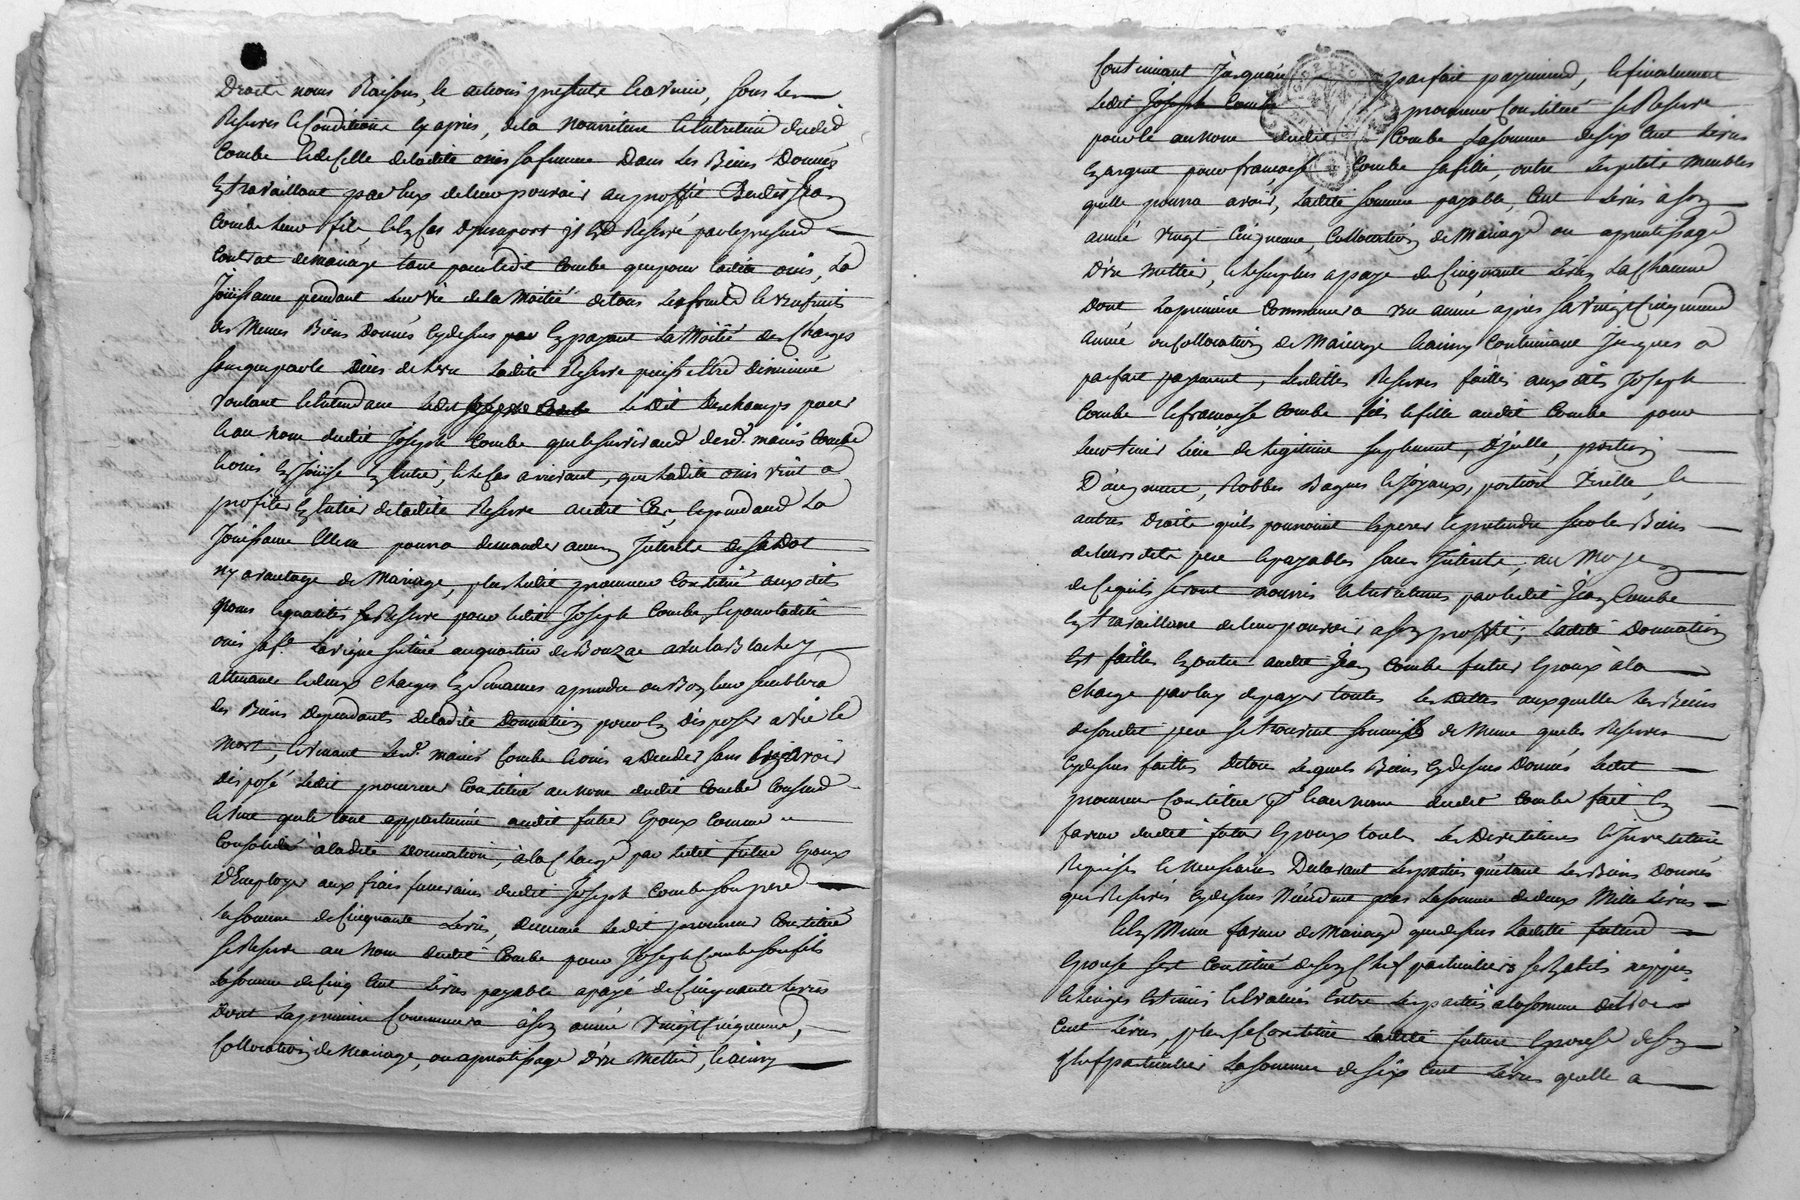 Droits noms Raisons, et actions presents et avenir, sous les
Reserves et Conditions cy apres, de la nourriture et entretiend dudit
Combe et de celle de ladite onis sa femme Dans les Biens Donnés
En travaillant par Eux de leur pouvoir au proffit Dudit Jean
Combe leur fils, et En Cas Dinsuport il Est Reservé par le present
Contrat de mariage tant pour ledit Combe que pour ladite onis, La
Joüissance pendant leur vie de la Moitié de tous les fruits et uzufruits
des Memes Biens Donnés Cy dessus par En payant La Moitié des Charges
sans que par le Dèces de l'un ladite Reserve puisse Etre Diminuée
voulant Entendant ledit Deschamps pour
et au nom dudit Joseph Combe que le survivand desd. mariés Combe
et onis En Joüisse En Entier, et le Cas arrivant, que ladite onis vint a
profiter En Entier de ladite Reserve audit Cas, Et pendand La
Joüissance Elle ne pourra demander aucun Interets de sa Dot
ny avantage de Mariage, plus ledit procureur Constitué aux dits
noms et qualités se Reserve pour ledit Joseph Combe, et pour ladite
onis sa f.e La vigne située au quartier de Bouzac
attenante et deux charges En Semances a prendre ou Bon leur semblera
des Biens Dependants de ladite Donnation pour En disposer a vie et
mort, Et venant les d. mariés Combe et onis a Deceder sans En avoir
disposé ledit procureur Constitué au nom dudit Combe Consend
et veut que le tout appartienne audit futur Epoux Comme
Consolidé à ladite Donnation, à la Charge par ledit futur Epoux
D'Employer aux frais funeraires dudit Joseph Combe son pere
la somme de Cinquante Livres, de meme ledit procureur Constitué
se Reserve au Nom dudit Combe pour Joseph Combe son fils
La somme de Cinq Cent Livres payable a payé de Cinquante Livres
Dont La premiere Commencera à son année Vingt Cinquieme,
Collocation de Mariage, ou aprentissage D'un Metier, et ainsy
Continuant Jusques à parfait payement, et finalement
Ledit procureur Constitué se Reserve
pour le au nom dudit Combe La somme de six Cent Livres
En argent pour françoise Combe sa fille, outre les petits Meubles
quelle pourra avoir, Ladite somme payable, Cent Livres à son
année vingt Cinquieme, Collocation de Mariage ou aprentissage
D'un Metier, et le surplus a paye de Cinquante Livres La Chacune
Dont La premiere Commencera une année apres sa vingt Cinquieme
année ou Collocation de Mariage et ainsy Continuant Jusques a
parfait payement, lesdites Reserves faittes aux dits Joseph
Combe et françoise Combe fils et fille audit Combe pour
leur tenir Lieu de Legitime suplement, D'icelle, portion
D'augment, Robbes Bagues et Joyaux, portion virille, et
autres Droits qu'ils pourroient Esperer et pretendre sur les Biens
de leurs dits pere et payables sans Interets, au Moyen
de ce qu'ils seront nourris et Entretenus par ledit Jean Combe
En travaillant de leur pouvoir a son proffit; Ladite Donnation
Est faitte En outre audit Jean Combe futur Epoux à la
Charge par luy de payer toutes les Dettes auxquelles les Biens
de sondit pere se trouvent soumis de Meme que les Reserves
Cy dessus faittes De tous lesquels Biens Cy dessus Donnés ledit
procureur Constitué et au nom dudit Combe fait En
faveur dudit futur Epoux toutes les Devetitures et Investiture
Requises et Necessaires Declarant les parties que tant les Biens Donnés
que Reservés Cy dessus N'Exedent pas La somme de deux Mille Livres
Et En Meme faveur de Mariage que dessus Laditte future
Epouse s'est Constitué de son Chef particulier ses habits nippes
et Linges Estimés Et Evalués Entre les parties a La somme de trois
Cent Livres plus se Constitue Ladite future Epouse de son
Chef particulier La somme de six Cent Livres quelle a